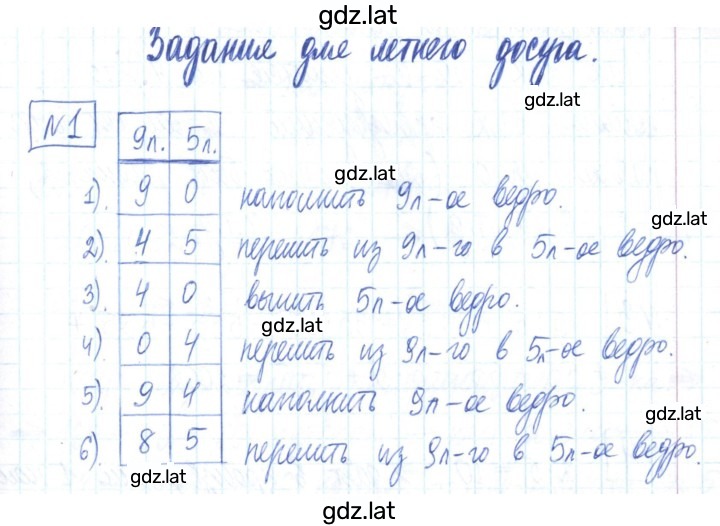 gdz.lat
Задания для летнего досуга.
gdz.lat
№1
9л. 5л.
gdz.lat
1). 9 0 наполнить 9л-ое ведро.
gdz.lat
2). 4 5 перелить из 9л-го в 5л-ое ведро.
3). 4 0 вылить 5л-ое ведро.
gdz.lat
4). 0 4 перелить из 9л-го в 5л-ое ведро.
5). 9 4 наполнить 9л-ое ведро.
gdz.lat
6). 8 5 перелить из 9л-го в 5л-ое ведро.
gdz.lat
gdz.lat